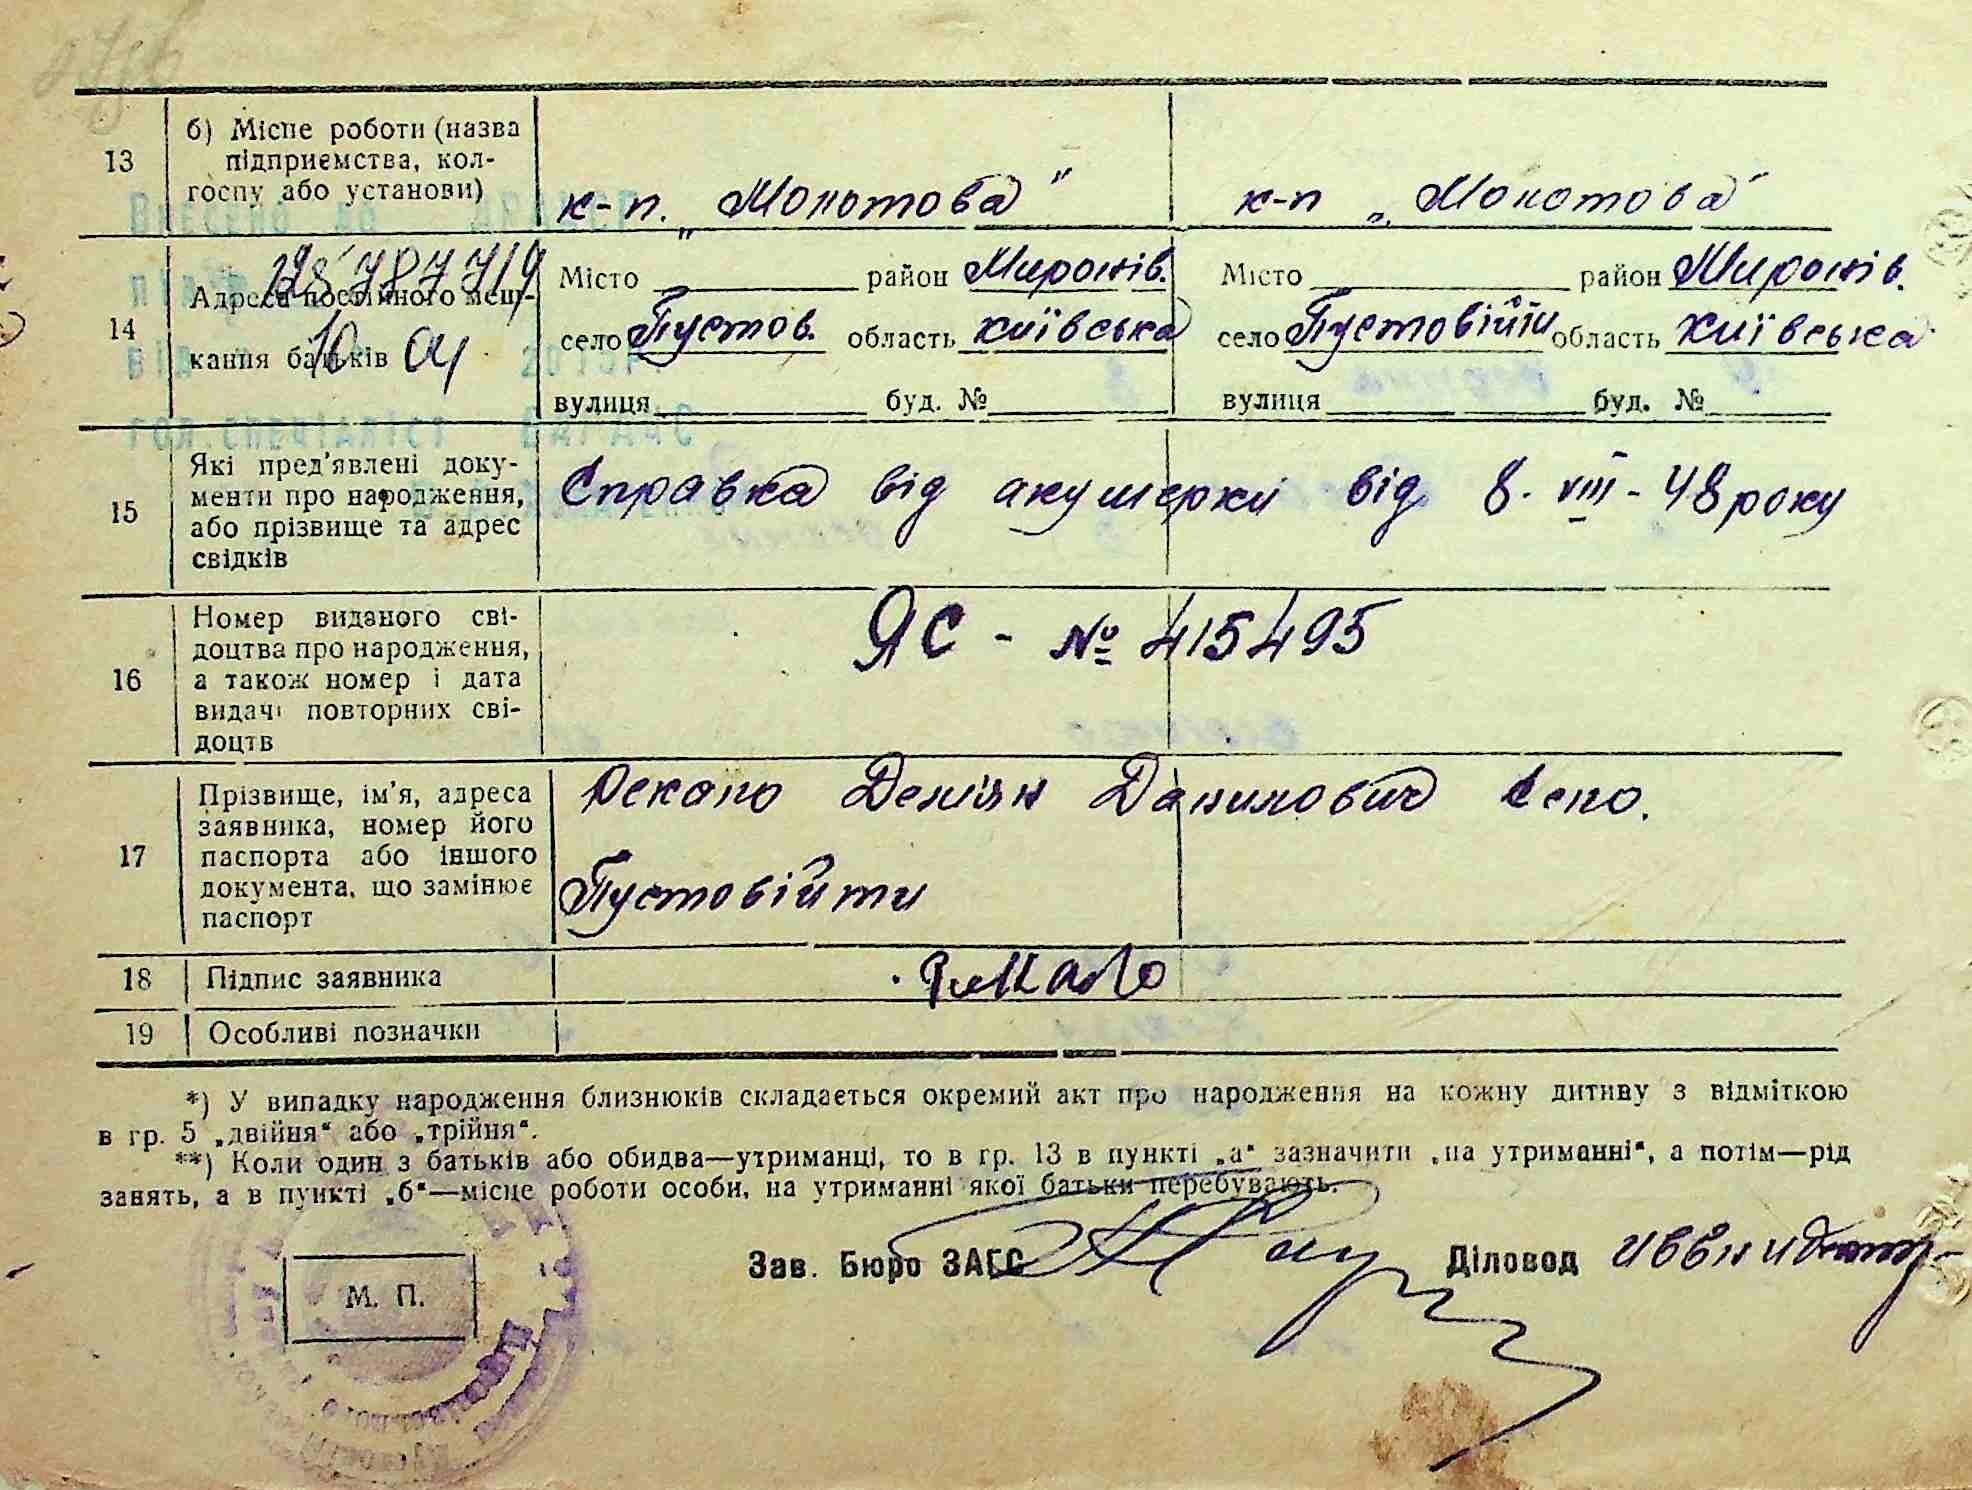 13
б) Місце роботи (назва
підприємства, кол-
госпу або установи)
к-п. „Молотова"
к-п „Молотова"
14
Адреса постійного меш-
кання батьків
Місто район Миронів.
село Пустов. область Київська
вулиця буд. №
Місто район Миронів.
село Пустовійти область Київська
вулиця буд. №
15
Які пред'явлені доку-
менти про народження,
або прізвище та адрес
свідків
Справка від акушерки від 8-VIII-48 року
16
Номер виданого сві-
доцтва про народження,
а також номер і дата
видачі повторних сві-
доцтв
ЯС - № 415495
17
Прізвище, ім'я, адреса
заявника, номер його
паспорта або іншого
документа, що замінює
паспорт
Демʼян Данилович село.
Пустовійти
18
Підпис заявника
19
Особливі позначки
*) У випадку народження близнюків складається окремий акт про народження на кожну дитину з відміткою
в гр. 5 „двійня" або „трійня".
**) Коли один з батьків або обидва—утриманці, то в гр. 13 в пункті „а" зазначити „на утриманні", а потім—рід
занять, а в пункті „б"—місце роботи особи, на утриманні якої батьки перебувають.
Зав. Бюро ЗАГС
Діловод
М. П.